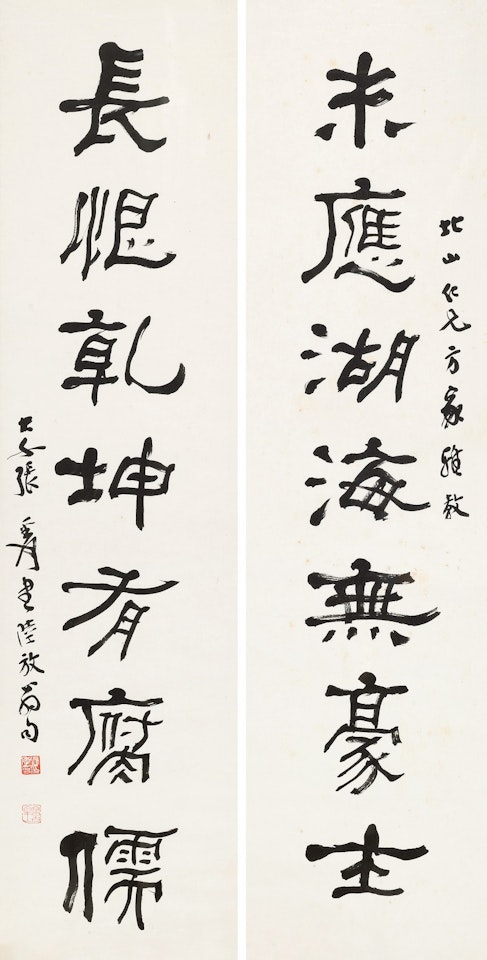 北山仁兄方家雅教
未應湖海無豪士
長恨乾坤有腐儒
大千張爰書陸放翁句